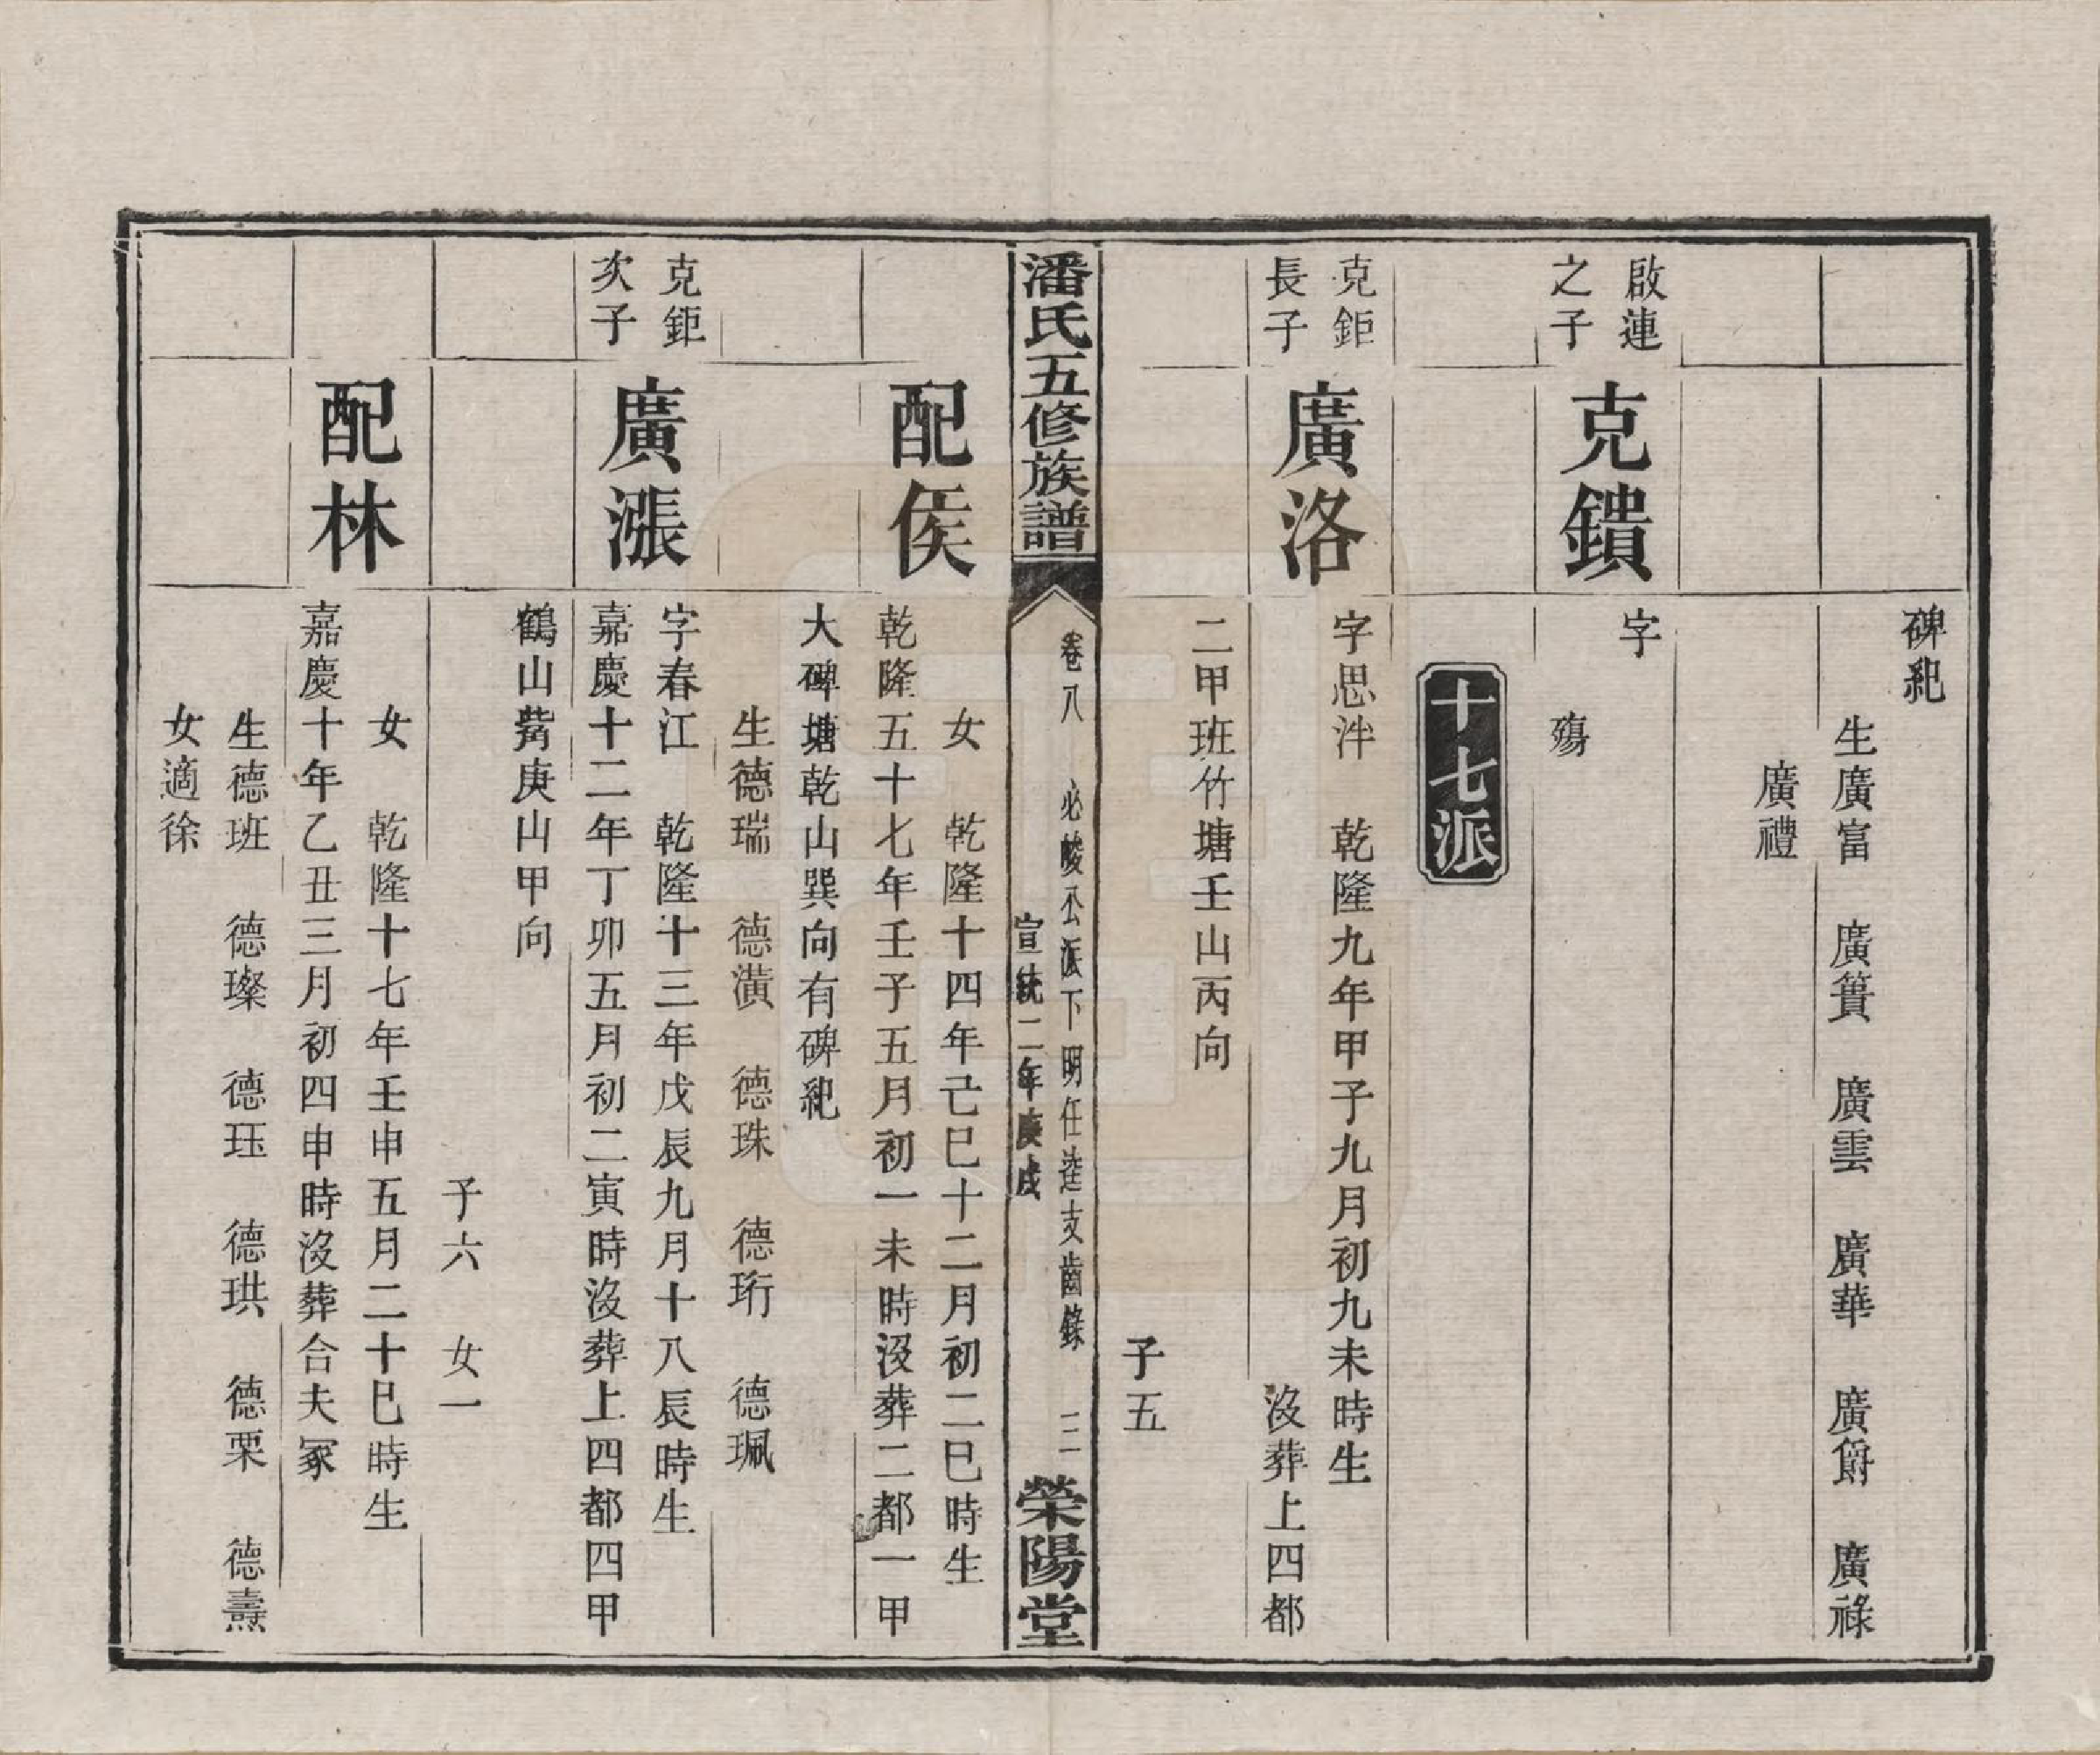 碑紀
生廣富　廣簣　廣雲　廣華　廣爵　廣祿
廣禮
啟連
之子
克鐀
字
殤
十七派
克鉅
長子
廣洛
字思泮　乾隆九年甲子九月初九未時生
沒葬上四都
二甲班竹塘壬山丙向
子五
潘氏五修族譜
卷八　必酸公派下明任逵支齒錄　三
宣統二年庚戌
榮陽堂
配侯
女　乾隆十四年己巳十二月初二巳時生
乾隆五十七年壬子五月初一未時沒葬二都一甲
大碑塘乾山巽向有碑紀
生德瑞　德潢　德珠　德珩　德珮
克鉅
次子
廣漲
字春江　乾隆十三年戊辰九月十八辰時生
嘉慶十二年丁卯五月初二寅時沒葬上四都四甲
鶴山觜庚山甲向
子六　女一
配林
女　乾隆十七年壬申五月二十巳時生
嘉慶十年乙丑三月初四申時沒葬合夫冢
生德班　德璨　德珏　德珙　德栗　德燾
女適徐